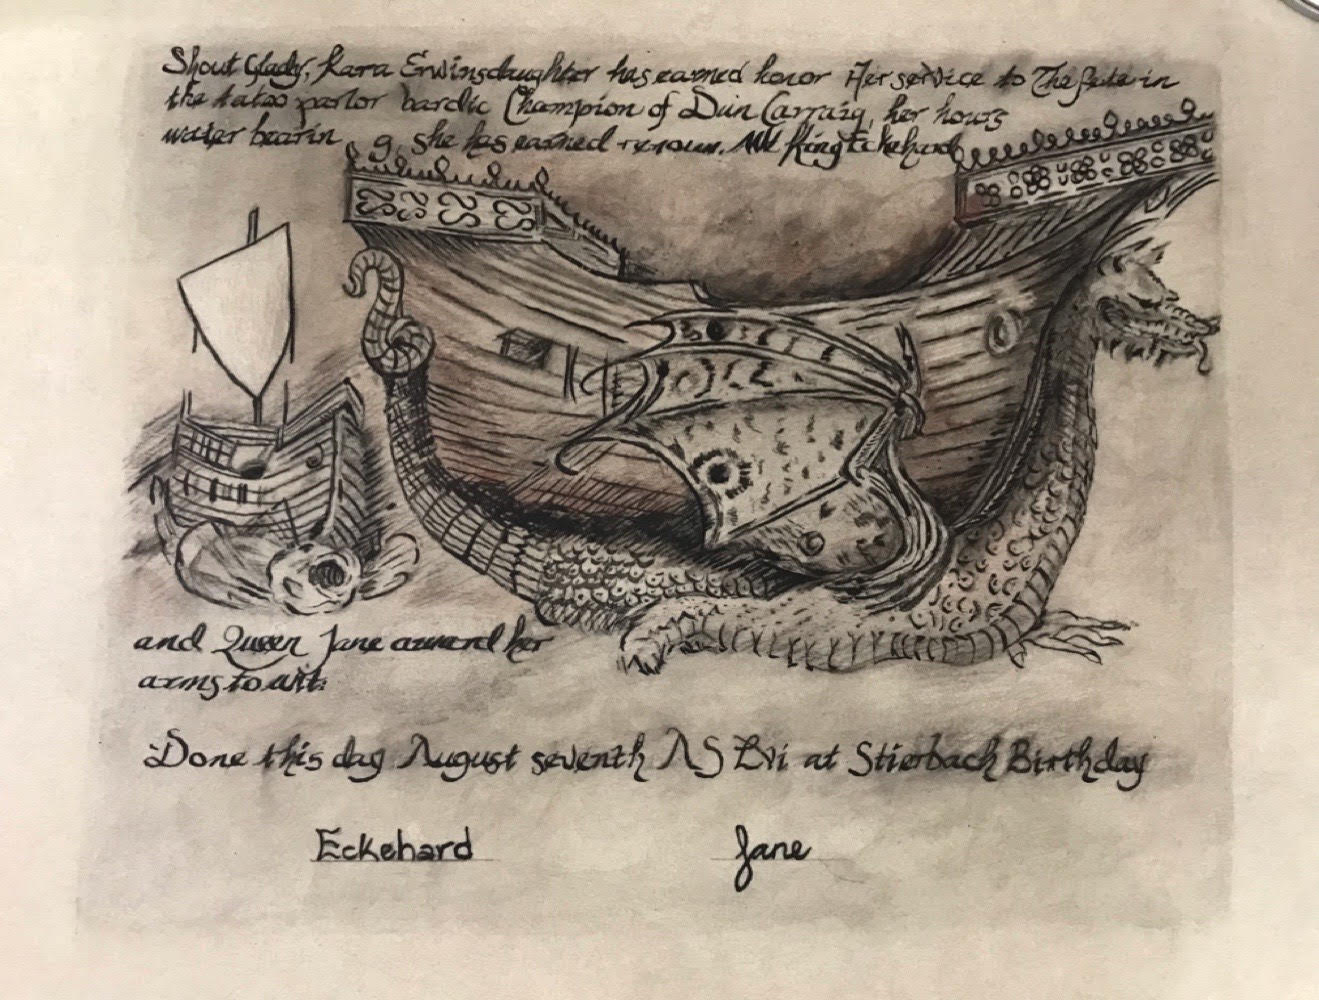 Shout Gladly, Kara Erwinsdaughter has earned honor Her service to The in
the tatoo parlor bardic Champion of Dun Carraig, her hours
water bearin g, she has earned renown. We King Eckehard
and Queen Jane award her
arms to wit:
Done this day August seventh AS Lvi at Stierbach Birthday
Eckehard Jane